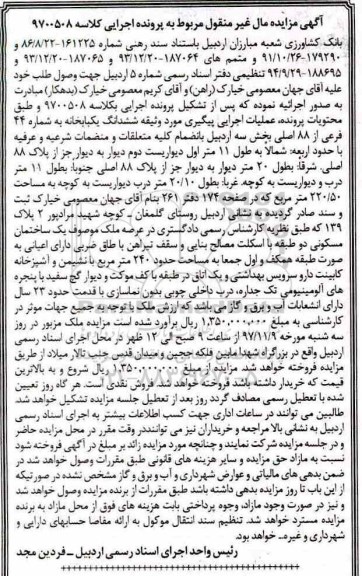 آگهی مزایده مال غیر منقول مربوط به پرونده اجرایی کلاسه ۹۷۰۰۵۰۸
بانک کشاورزی شعبه مبارزان اردبیل باستناد سند رهنی شماره ۱۶۱۲۲۵-۸۶/۸/۲۲ و
۱۷۹۲۹۰-۹۱/۱۰/۲۶ و متمم های ۱۸۷۰۶۴-۹۳/۱۲/۲۰ و ۱۸۷۰۶۵-۹۳/۱۲/۲۰ و
۱۸۸۶۹۵-۹۴/۹/۲۹ تنظیمی دفتر اسناد رسمی شماره ۵ اردبیل جهت وصول طلب خود
علیه آقای جهان معصومی خیارک (راهن) و آقای کریم معصومی خیارک (بدهکار) مبادرت
به صدور اجرائیه نموده که پس از تشکیل پرونده اجرایی بکلاسه ۹۷۰۰۵۰۸ و طبق
محتویات پرونده، عملیات اجرایی پیگیری مورد وثیقه ششدانگ یکبابخانه به شماره ۴۴
فرعی از ۸۸ اصلی بخش سه اردبیل بانضمام کلیه متعلقات و منضمات شرعیه و عرفیه
با حدود اربعه: شمالا به طول ۱۱ متر اول دیواریست دوم دیوار به دیوار جز از پلاک ۸۸
اصلی. شرقا: بطول ۲۰ متر دیوار به دیوار جز از پلاک ۸۸ اصلی جنوبا: بطول ۱۱ متر
درب و دیواریست به کوچه. غربا: بطول ۲۰/۱۰ متر درب دیواریست به کوچه به مساحت
۲۲۰/۵۰ متر مربع که در صفحه ۱۷۴ دفتر ۲۶۱ بنام آقای جهان معصومی خیارک ثبت
و سند صادر گردیده به نشانی اردبیل روستای گلمغان - کوچه شهید مرادپور ۲ پلاک
۱۳۹ که طبق نظریه کارشناس رسمی دادگستری در عرصه ملک موصوف یک ساختمان
مسکونی دو طبقه با اسکلت مصالح بنایی و سقف تیرآهن با طاق ضربی دارای اعیانی به
صورت طبقه همکف و اول جمعا به مساحت حدود ۲۴۰ متر مربع با نشیمن و آشپزخانه
کابینت دارو سرویس بهداشتی و یک اتاق در طبقه با کف موکت و دیوار گچ سفید با پنجره
های آلومینیومی تک جداره، درب داخلی چوبی بدون نماسازی با قدمت حدود ۲۳ سال
دارای انشعابات آب و برق و گاز می باشد که ارزش ملک با توجه به جمیع جهات موثر در
کارشناسی به مبلغ ۱,۳۵۰,۰۰۰,۰۰۰ ریال برآورد شده است مزایده ملک مزبور در روز
سه شنبه مورخه ۹۷/۱۱/۹ از ساعت ۹ صبح الی ۱۲ ظهر در محل اجرای اسناد رسمی
اردبیل واقع در بزرگراه شهدا مابین فلکه ججین و میدان قدس جنب تالار میلاد از طریق
مزایده فروخته خواهد شد. مزایده از مبلغ ۱,۳۵۰,۰۰۰,۰۰۰ ریال شروع و به بالاترین
قیمت که خریدار داشته باشد فروخته خواهد شد. فروش نقدی است. هر گاه روز تعیین
شده با تعطیل رسمی مصادف گردد روز بعد از تعطیل جلسه مزایده تشکیل خواهد شد.
طالبین می توانند در ساعات اداری جهت کسب اطلاعات بیشتر به اجرای اسناد رسمی
اردبیل به نشانی بالا مراجعه و خریداران نیز می توانند در وقت مقرر در محل مزایده حاضر
و در جلسه مزایده شرکت نمایند و چنانچه مورد مزایده زائد بر مبلغ در آگهی فروخته شود
نسبت به مازاد حق مزایده و سایر هزینه های قانونی طبق مقررات وصول خواهد شد در
ضمن بدهی های مالیاتی و عوارض شهرداری و آب و برق و گاز مشخص نشده در صورتیکه
از این باب تا روز مزایده بدهی داشته باشد طبق مقررات از برنده مزایده وصول خواهد شد
و نیز در صورت وجود مازاد، وجوه پرداختی بابت هزینه های فوق از محل مازاد به برنده
مزایده مسترد خواهد شد. تنظیم سند انتقال موکول به ارائه مفاصا حسابهای دارایی و
شهرداری و غیره.. خواهد بود.
رئیس واحد اجرای اسناد رسمی اردبیل - فردین مجد